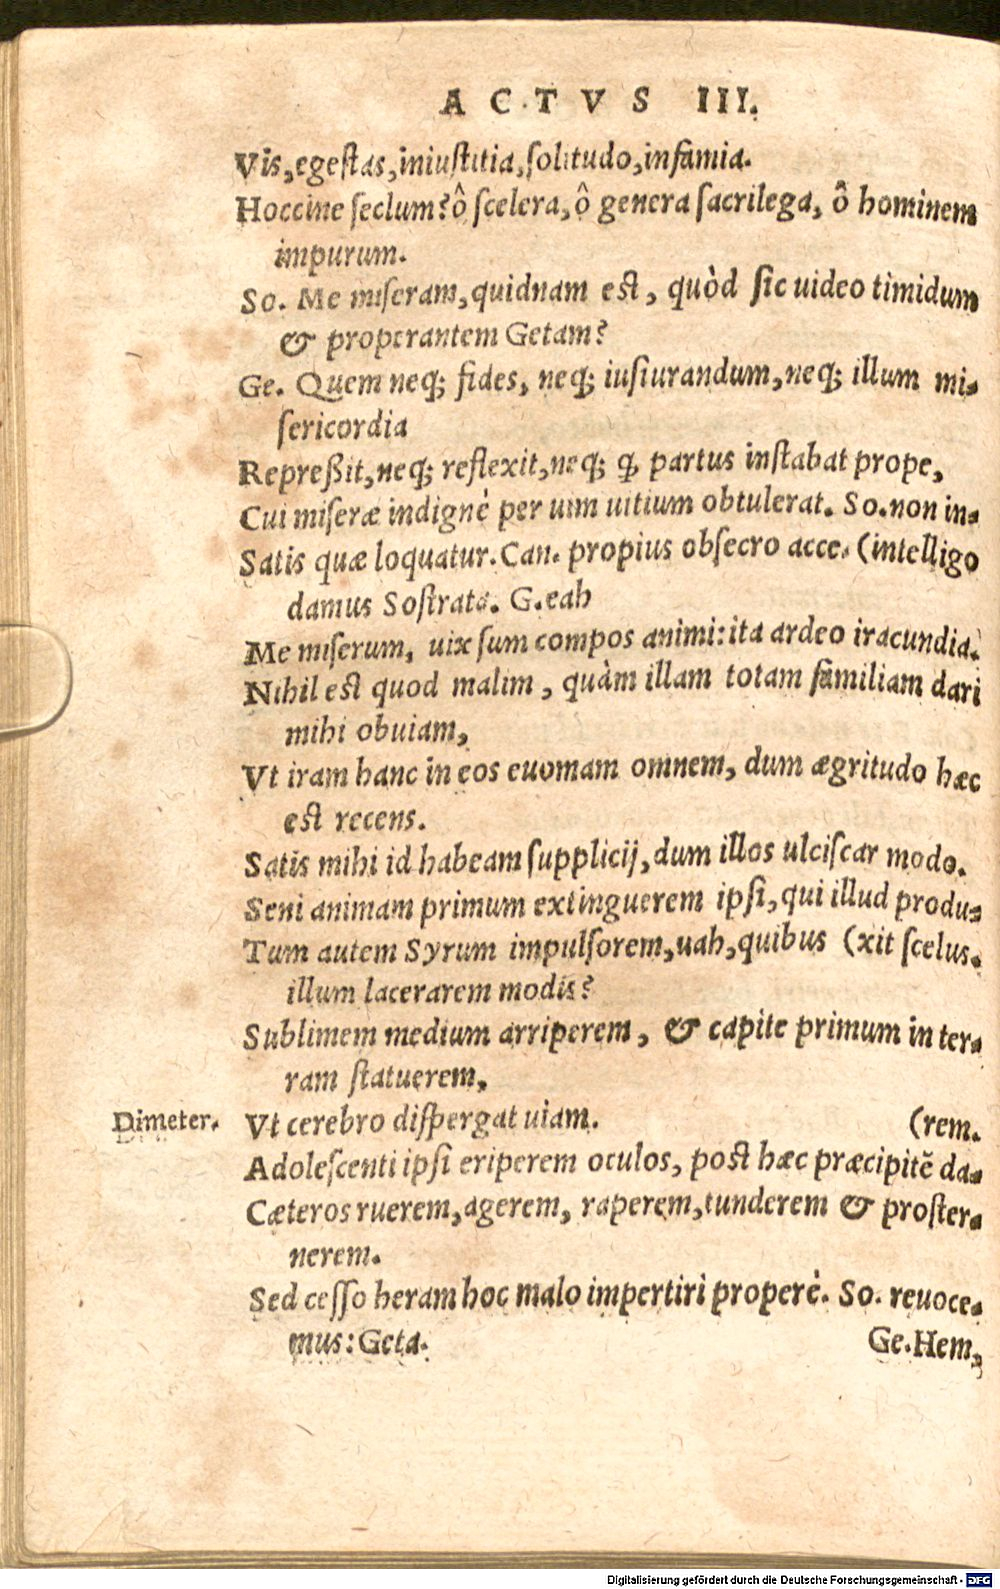 ACTVS III.
Vis, egestas, iniustitia, solitudo, infamia.
Hoccine seclum? ô scelera, ô genera sacrilega, ô hominem
impurum.
So. Me miseram, quidnam est, quòd sic uideo timidum
& properantem Getam?
Ge. Quem neq; fides, neq; iusiurandum, neq; illum mi-
sericordia
Repreßit, neq; reflexit, neq; ꝙ partus instabat prope,
Cui miseræ indignè per uim uitium obtulerat. So. non in-
Satis quæ loquatur. Can. propius obsecro acce- (intelligo
damus Sostrata. G. eah
Me miserum, uix sum compos animi: ita ardeo iracundia.
Nihil est quod malim, quàm illam totam familiam dari
mihi obuiam,
Vt iram hanc in eos euomam omnem, dum ægritudo hæc
est recens.
Satis mihi id habeam supplicij, dum illos ulciscar modo.
Seni animam primum extinguerem ipsi, qui illud produ-
Tum autem Syrum impulsorem, uah, quibus (xit scelus.
illum lacerarem modis?
Sublimem medium arriperem, & capite primum in ter-
ram statuerem,
Dimeter. Vt cerebro dispergat uiam. (rem.
Adolescenti ipsi eriperem oculos, post hæc præcipitē da-
Cæteros ruerem, agerem, raperem, tunderem & proster-
nerem.
Sed cesso heram hoc malo impertiri properè. So. reuoce-
mus: Geta. Ge. Hem,
Digitalisierung gefördert durch die Deutsche Forschungsgemeinschaft - DFG